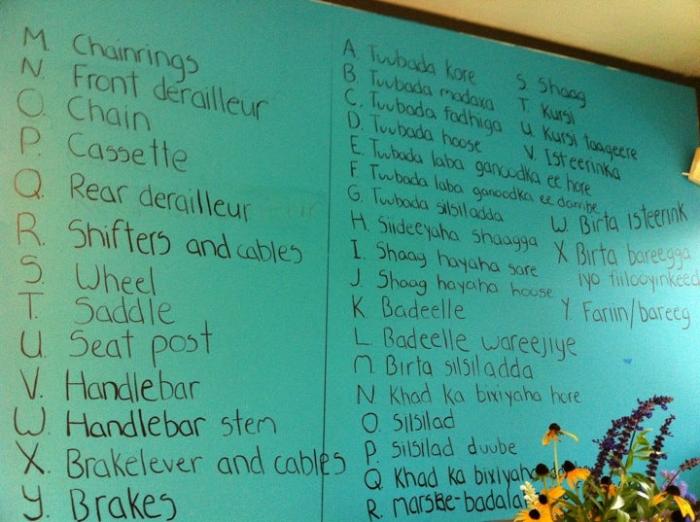 M. Chainrings
N. Front derailleur
O. Chain
P. Cassette
Q. Rear derailleur
R. Shifters and cables
S. Wheel
T. Saddle
U. Seat post
V. Handlebar
W. Handlebar stem
X. Brakelever and cables
Y. Brakes
A. Tuubada kore
B. Tuubada madaxa
C. Tuubada fadhiga
D. Tuubada hoose
E. Tuubada laba ganoodka ee hore
F. Tuubada laba ganoodka ee dambe
G. Tuubada silsiladda
H. Siideeyaha shaagga
I. Shaag hayaha sare
J. Shaag hayaha hoose
K. Badeelle
L. Badeelle wareejiye
M. Birta silsiladda
N. Khad ka bixiyaha hore
O. Silsilad
P. Silsilad duube
Q. Khad ka bixiyaha
R. marshe-badala
S. Shaag
T. Kursi
U. Kursi taageere
V. Isteerinka
W. Birta isteerink
X Birta bareegga
iyo fiilooyinkeed
Y. Fariin/bareeg